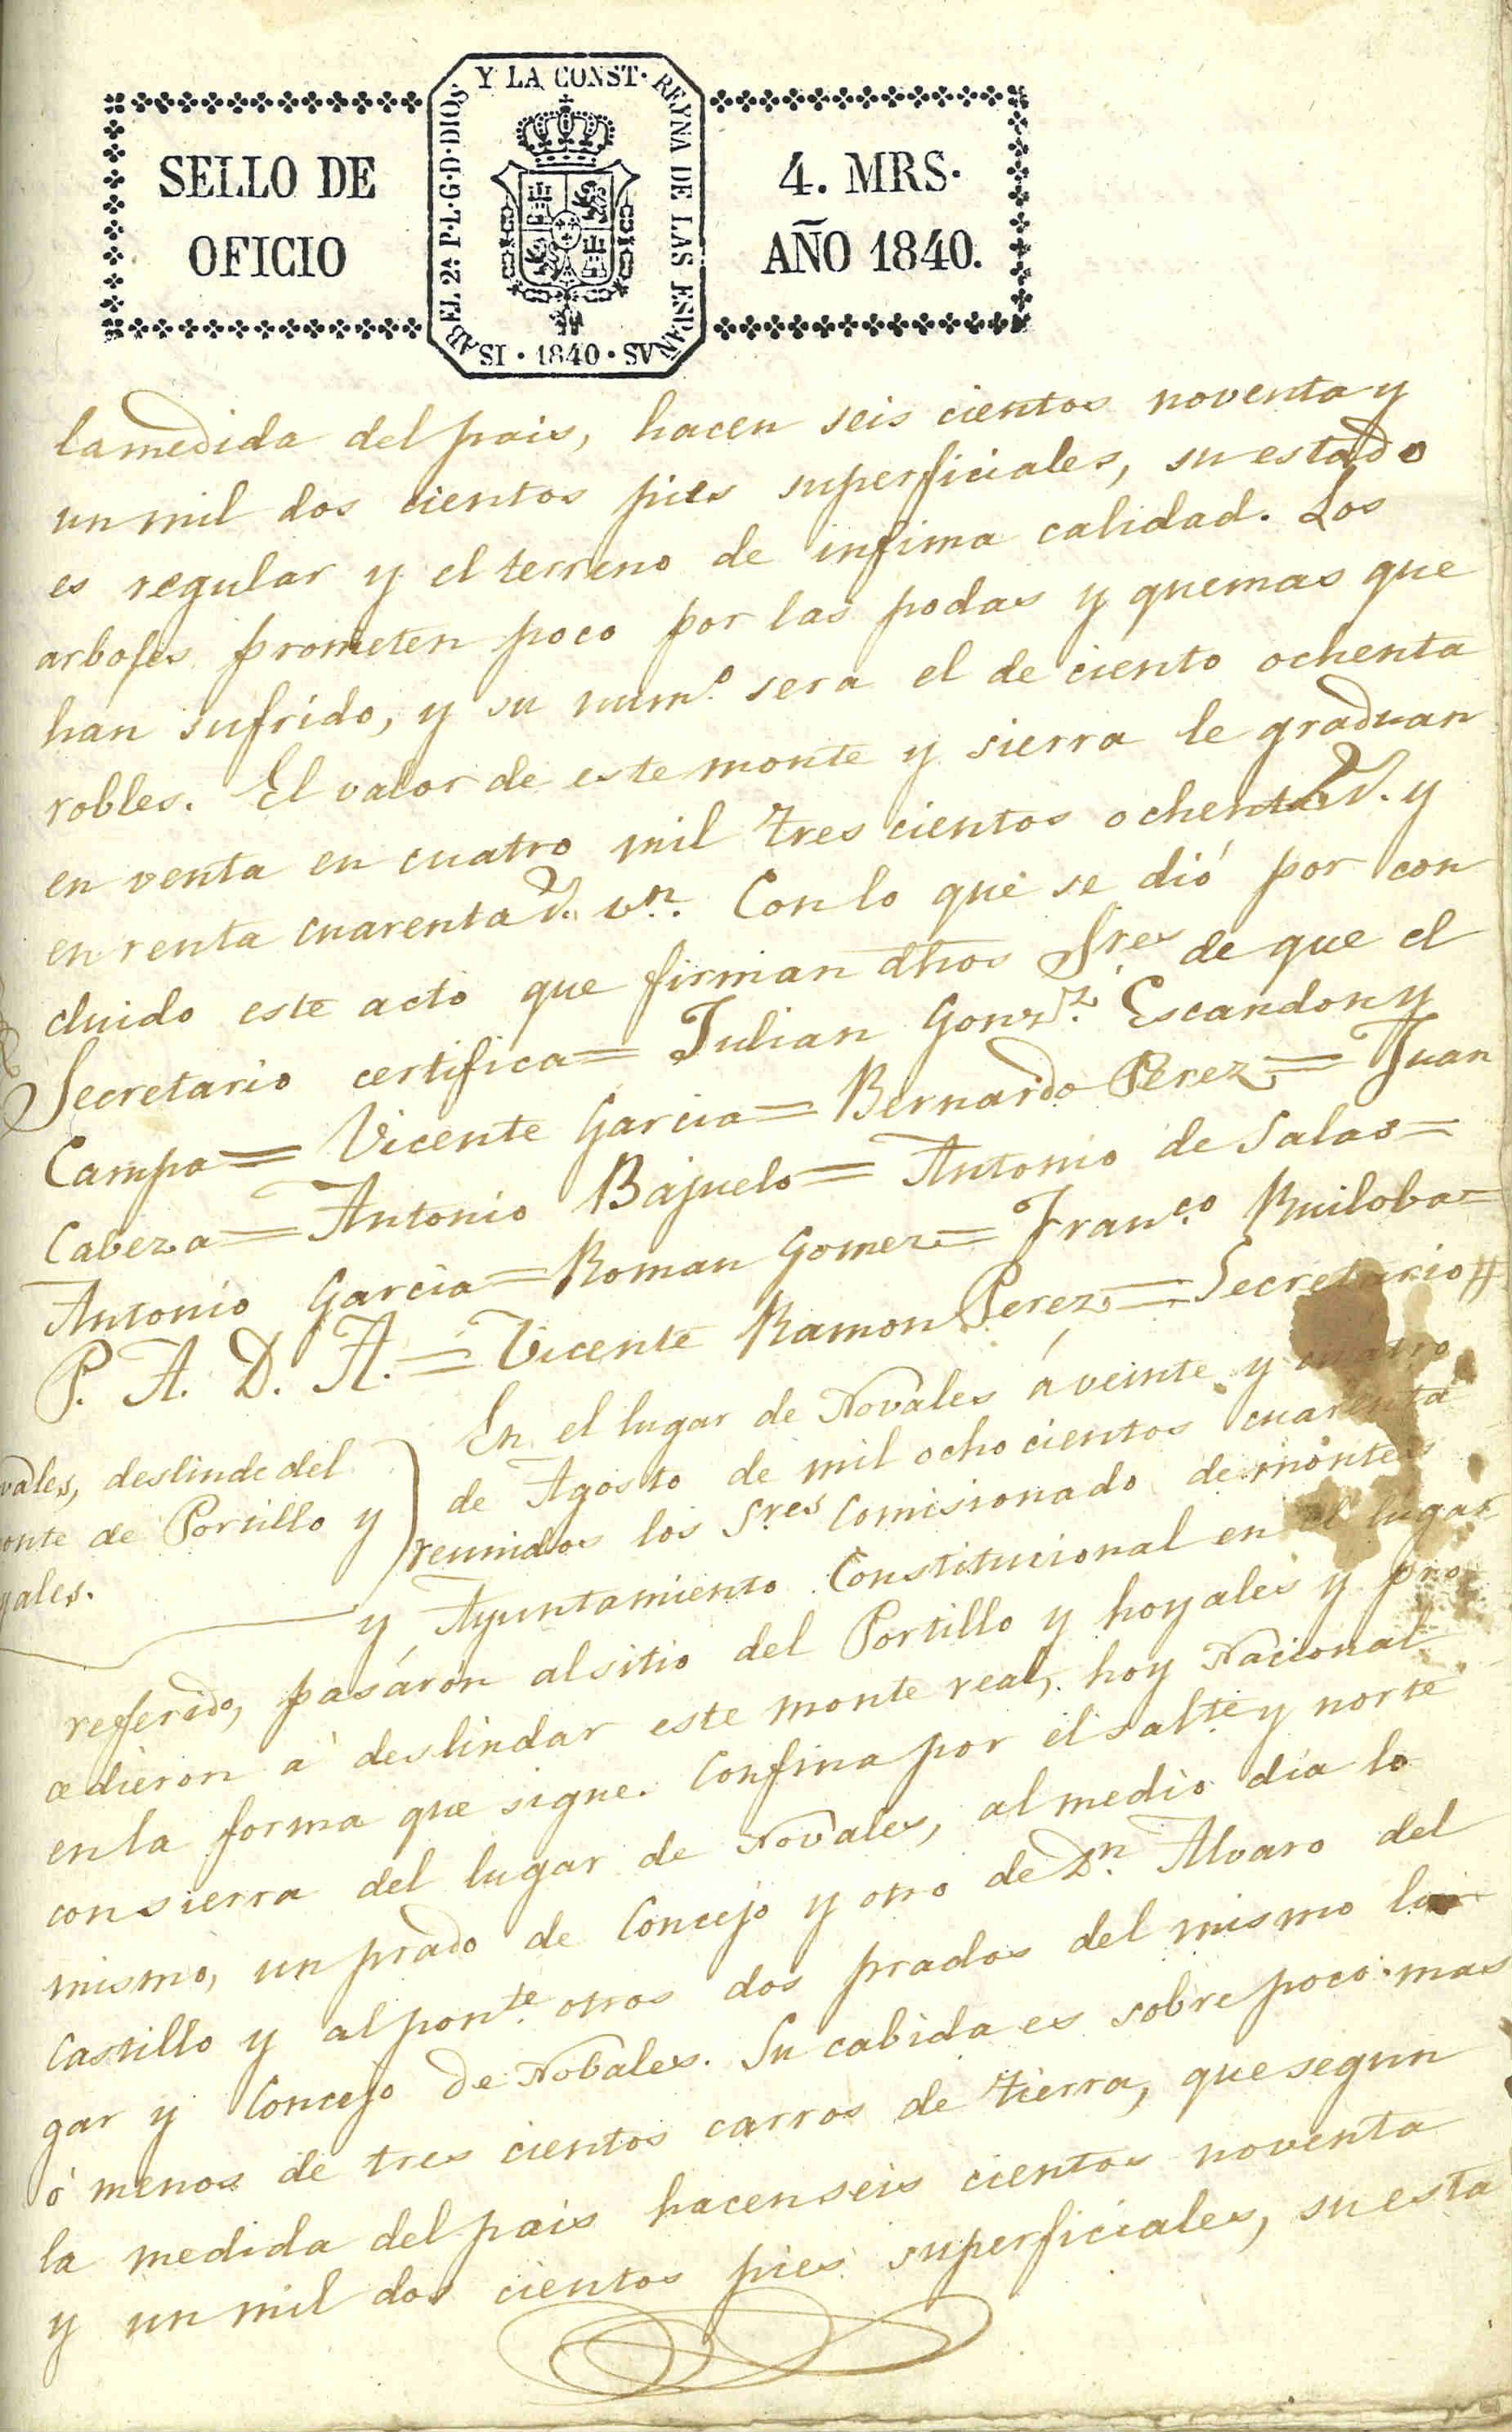 SELLO DE
OFICIO
ISABEL 2ª P.L.G.D.DIOS Y LA CONST. REYNA DE LAS ESPAÑAS
· 1840 ·
4. MRS.
AÑO 1840.
la medida del pais, hacen seis cientos noventa y
un mil dos cientos pies superficiales, su estado
es regular y el terreno de infima calidad. Los
arboles prometen poco por las podas y quemas que
han sufrido, y su num.º sera el de ciento ochenta
robles. El valor de este monte y sierra le graduan
en venta en cuatro mil tres cientos ochenta r.s y
en renta cuarenta r.s v.n. Con lo que se dió por con
cluido este acto que firman dhos Sres. de que el
Secretario certifica = Julian Gonz.z Escandon y
Campo = Vicente Garcia = Bernardo Perez = Juan
Cabeza = Antonio Bajuelo = Antonio de Salas =
Antonio Garcia = Roman Gomez = Fran.co Ruiloba =
P. A. D. A. = Vicente Ramon Perez = Secretario #
vales, deslinde del
onte de Portillo y
yales.
En el lugar de Novales á veinte y cuatro
de Agosto de mil ocho cientos cuarenta
reunidos los Sres Comisionado de montes
y Ayuntamiento Constitucional en el lugar
referido, pasáron al sitio del Portillo y hoyales y pro
cedieron á deslindar este monte real, hoy Nacional
en la forma que sigue. Confina por el sal.te y norte
con sierra del lugar de Novales, al medio dia lo
mismo, un prado de Concejo y otro de D.n Alvaro del
Castillo y al pon.te otros dos prados del mismo lu
gar y Concejo de Nobales. Su cabida es sobre poco mas
ó menos de tres cientos carros de tierra, que segun
la medida del pais hacen seis cientos noventa
y un mil dos cientos pies superficiales, su esta